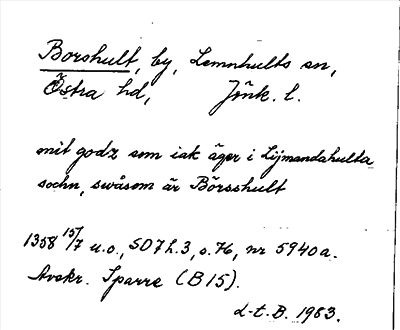 Borshult, by, Lemnhults sn,
Östra hd, Jönk. l.
mit godz som iak äger i Lijmandahulta
sochn, swåsom är Börsshult
1358 15/7 u.o., SD 7 h.3, s. 76, nr 5940a.
Avskr. Sparre (B 15).
d-t. B. 1983.